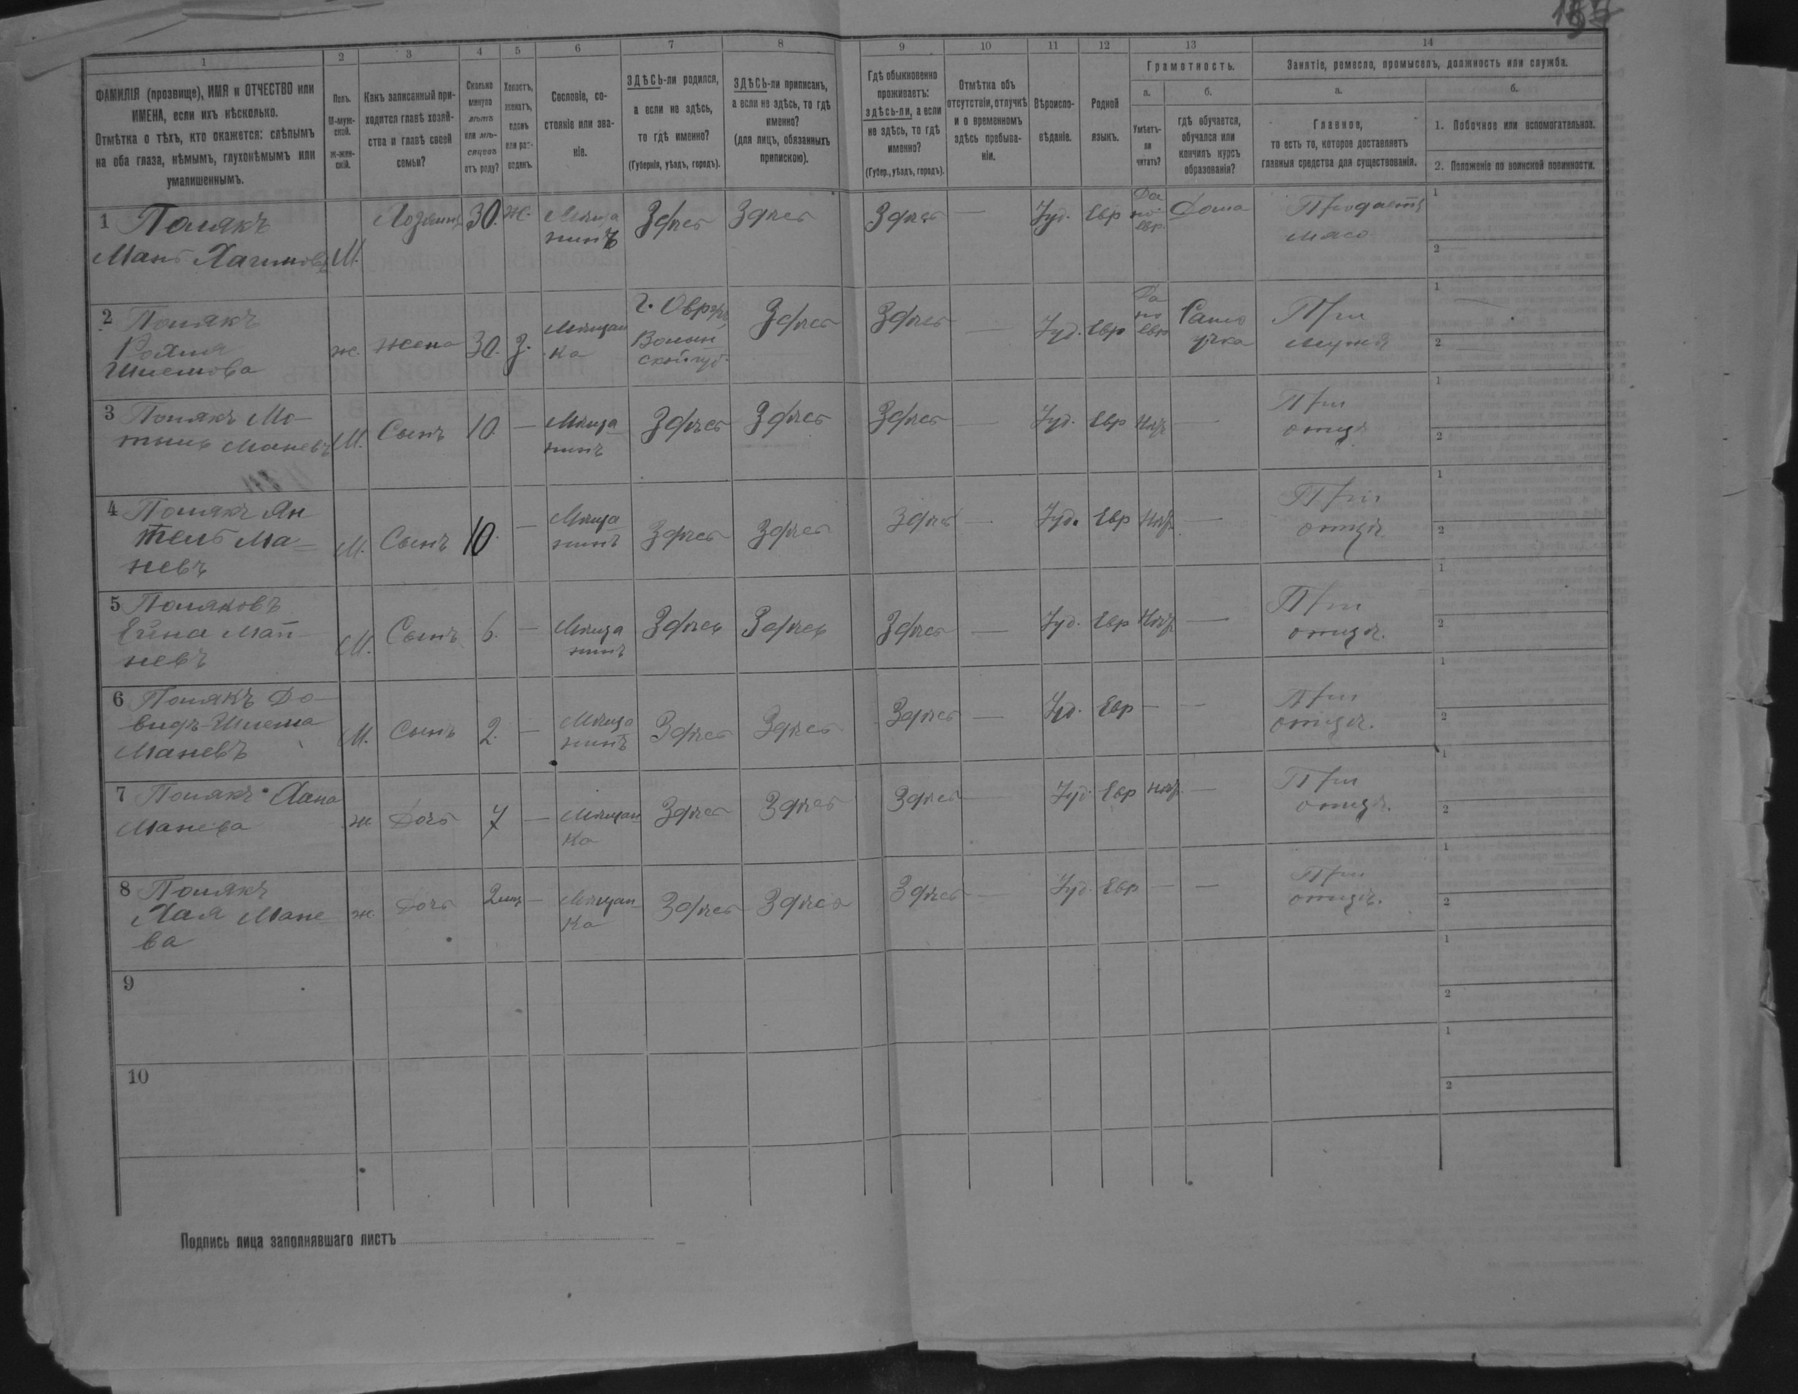 1
2
3
4
5
6
7
8
9
10
11
12
13
14
ФАМИЛІЯ (прозвище), ИМЯ и ОТЧЕСТВО или
ИМЕНА, если ихъ нѣсколько.
Отмѣтка о тѣхъ, кто окажется: слѣпымъ
на оба глаза, нѣмымъ, глухонѣмымъ или
умалишеннымъ.
Полъ.
М-муж-
ской.
ж-жен-
скій.
Какъ записанный при-
ходится главѣ хозяй-
ства и главѣ своей
семьи?
Сколько
минуло
лѣтъ
или мѣ-
сяцевъ
отъ роду?
Холостъ,
женатъ,
вдовъ
или раз-
веденъ.
Сословіе, со-
стояніе или зва-
ніе.
ЗДѢСЬ-ли родился,
а если не здѣсь,
то гдѣ именно?
(Губернія, уѣздъ, городъ).
ЗДѢСЬ-ли приписанъ,
а если не здѣсь, то гдѣ
именно?
(для лицъ, обязанныхъ
припискою).
Гдѣ обыкновенно
проживаетъ:
здѣсь-ли, а если
не здѣсь, то гдѣ
именно?
(Губер., уѣздъ, городъ).
Отмѣтка объ
отсутствіи, отлучкѣ
и о временномъ
здѣсь пребыва-
ніи.
Вѣроиспо-
вѣданіе.
Родной
языкъ.
Грамотность.
а.
Умѣетъ-
ли
читать?
б.
гдѣ обучается,
обучался или
кончилъ курсъ
образованія?
Занятіе, ремесло, промыселъ, должность или служба.
а.
Главное,
то есть то, которое доставляетъ
главныя средства для существованія.
б.
1. Побочное или вспомогательное.
2. Положеніе по воинской повинности.
1 Полякъ
М. Хозяинъ 30. ж. Мѣща
нинъ Здѣсь Здѣсь Здѣсь — Іуд. Евр Да
по
Евр. Дома
мясо
1
2
2 Полякъ
ж. жена 30. з. Мѣщан
ка г. Овручъ,
Волын
ской губ. Здѣсь Здѣсь — Іуд. Евр Да
по
Евр Само
учка При
мужѣ
1
2
3 Полякъ Мо-
М. Сынъ 10. — Мѣща
нинъ Здѣсь Здѣсь Здѣсь — Іуд. Евр Нѣтъ — При
отцѣ.
1
2
4 Полякъ Ян
кель Ма-
невъ М. Сынъ 10. — Мѣща
нинъ Здѣсь Здѣсь Здѣсь — Іуд. Евр Нѣтъ — При
отцѣ.
1
2
5 Поляковъ
М. Сынъ 6. — Мѣща
нинъ Здѣсь Здѣсь Здѣсь — Іуд. Евр Нѣтъ — При
отцѣ.
1
2
6 Полякъ До-
видъ-Шлема
Маневъ М. Сынъ 2. — Мѣща
нинъ Здѣсь Здѣсь Здѣсь — Іуд. Евр — — При
отцѣ.
1
2
7 Полякъ Хана
Манева ж Дочь 7 — Мѣщан
ка Здѣсь Здѣсь Здѣсь — Іуд. Евр нѣтъ — При
отцѣ.
1
2
8 Полякъ
Хая Мане
ва ж Дочь — Мѣщан
ка Здѣсь Здѣсь Здѣсь — Іуд. Евр — — При
отцѣ.
1
2
9
1
2
10
1
2
Подпись лица заполнявшаго листъ